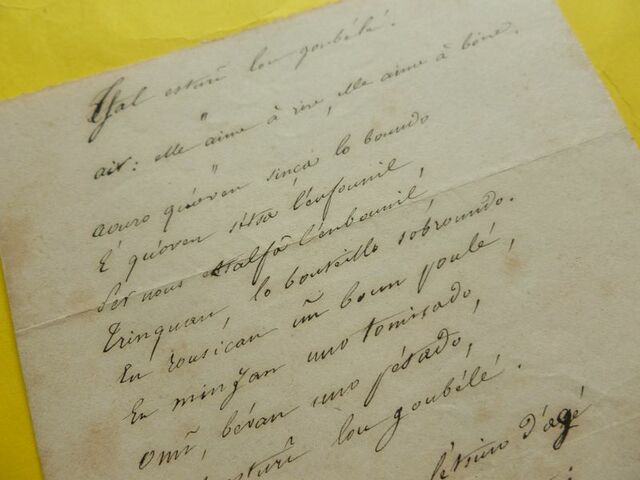 Gal esturñ lou goubélé.
"
air: elle aime à rire, elle aime à boire.
"
aouro qu'oven sinca lo boundo
É qu'oven sitsa l'enfounil,
Per nous estalfâ l'énbounil,
Trinquan, lo bouteillo sobroundo.
En rousican un boun poulé,
En minjan uno tomisado,
Omñ, bévan uno pésado,
esturñ lou goubélé.
d'agé